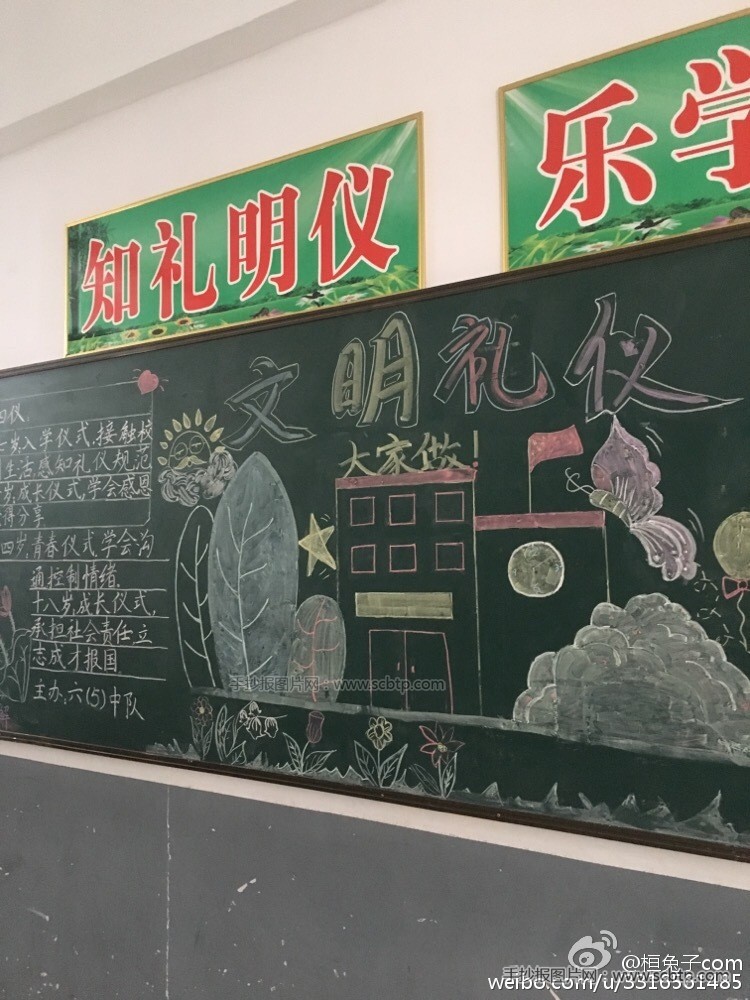 知礼明仪
乐学
文明礼仪
大家做!
四仪
岁,入学仪式,接触校
生活感知礼仪规范
岁,成长仪式,学会感恩
得分享
四岁,青春仪式学会沟
通控制情绪.
十八岁,成长仪式,
承担社会责任立
志成才报国
主办:六(5)中队
手抄报图片网:www.scbtp.com
@桓兔子com
手抄报图片网:www.scbtp.com
weibo.com/u/3316561485